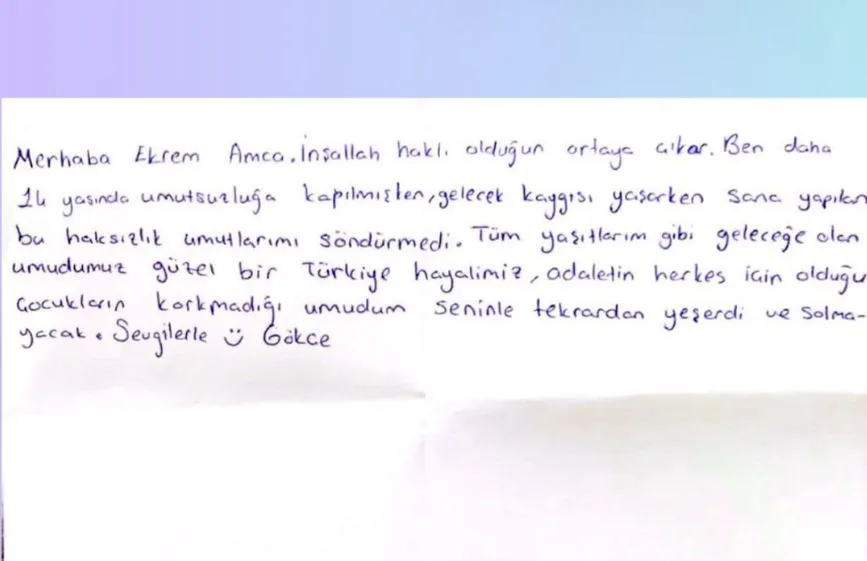 Merhaba Ekrem Amca. İnşallah haklı olduğun ortaya çıkar. Ben daha
14 yaşında umutsuzluğa kapılmışken, gelecek kaygısı yaşarken sana yapılan
bu haksızlık umutlarımı söndürmedi. Tüm yaşıtlarım gibi geleceğe olan
umudumuz güzel bir Türkiye hayalimiz, adaletin herkes için olduğu
Çocukların korkmadığı umudum seninle tekrardan yeşerdi ve solma-
yacak. Sevgilerle :) Gökçe